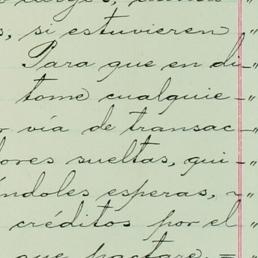 s, si estuvieren "
Para que en di- "
tome cualquie- "
r vía de transac- "
lores sueltas, qui- "
éndoles esperas, ~ "
créditos por el "
que pactare. =